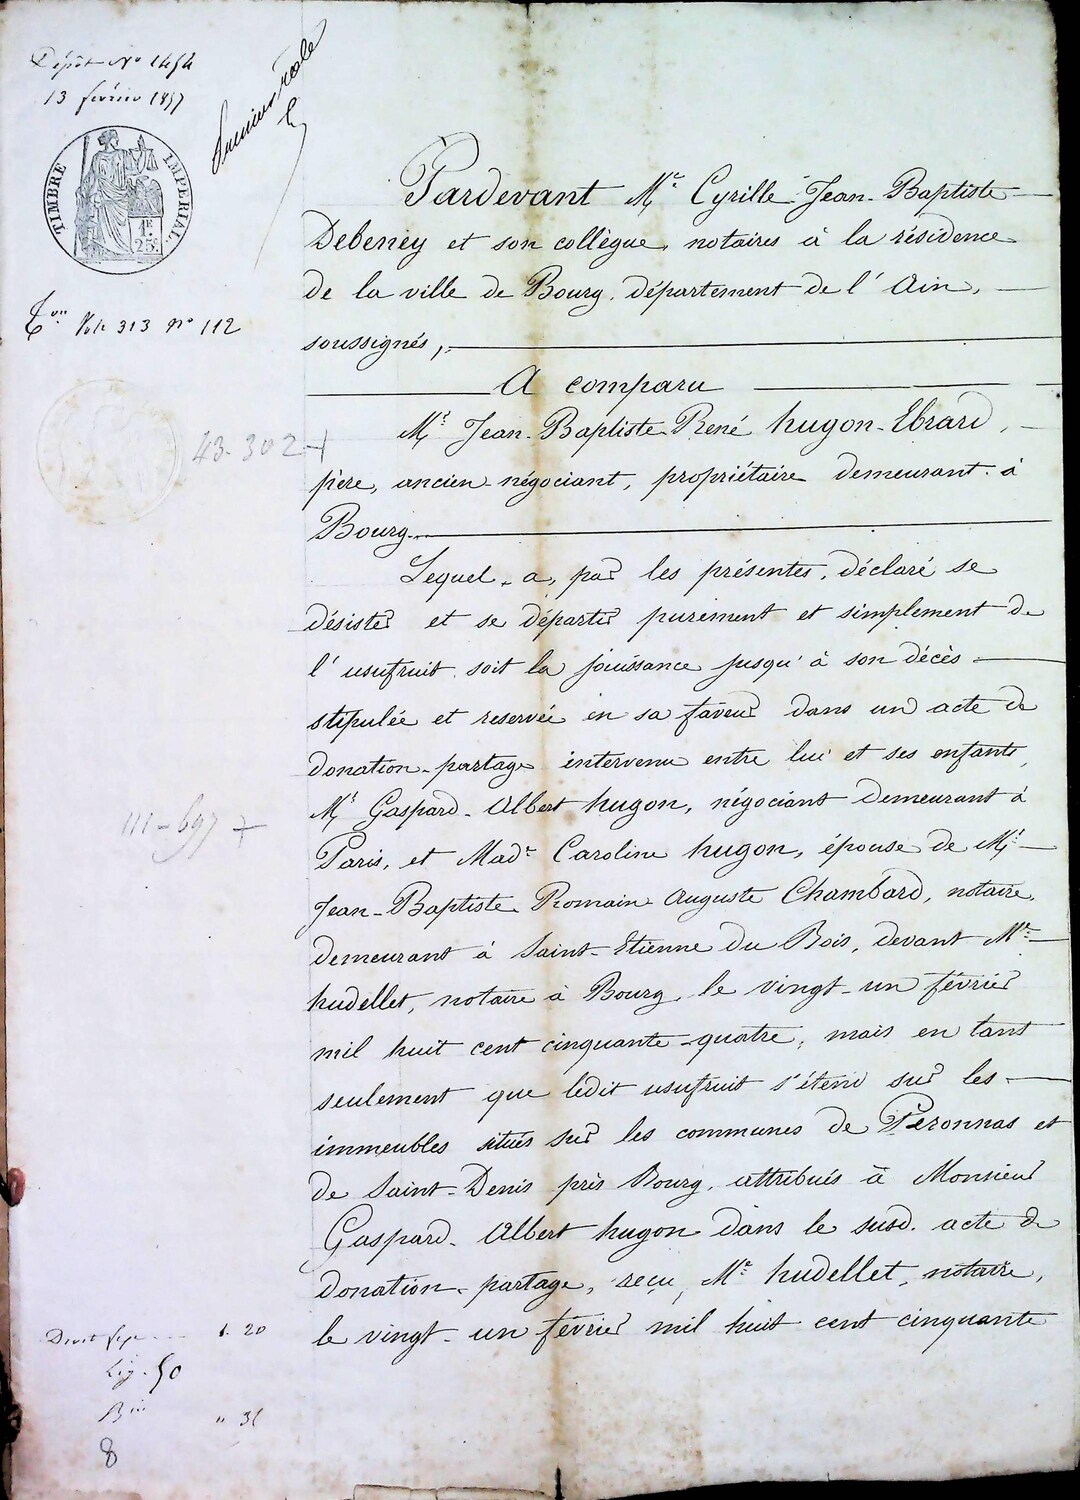 Dépôt No 1454
13 février 1857
Premier rôle
TIMBRE IMPERIAL.
1F.
25c.
Von Vol. 313 No 112
43-302
111-697
Pardevant Me Cyrille Jean-Baptiste
Debeney et son collègue, notaires à la résidence
de la ville de Bourg, département de l'Ain,
soussignés,
A comparu
Mr Jean-Baptiste René hugon-Ebrard,
père, ancien négociant, propriétaire demeurant à
Bourg.
Lequel a, par les présentes, déclaré se
désister et se départir purement et simplement de
l'usufruit soit la jouissance jusqu'à son décès
stipulée et reservée en sa faveur dans un acte de
donation-partage intervenu entre lui et ses enfants,
Mr Gaspard-Albert hugon, négociant demeurant à
Paris, et Made Caroline hugon, épouse de Mr
Jean-Baptiste Romain Auguste Chambard, notaire,
demeurant à Saint-Etienne du Bois, devant Me
hudellet, notaire à Bourg, le vingt-un février
mil huit cent cinquante-quatre, mais en tant
seulement que ledit usufruit s'étend sur les
immeubles situés sur les communes de Peronnas et
de Saint-Denis près Bourg, attribués à Monsieur
Gaspard-Albert hugon dans le susd. acte de
donation-partage, reçu Me hudellet, notaire,
le vingt-un février mil huit cent cinquante
Droit 1. 20
50
" 31
8